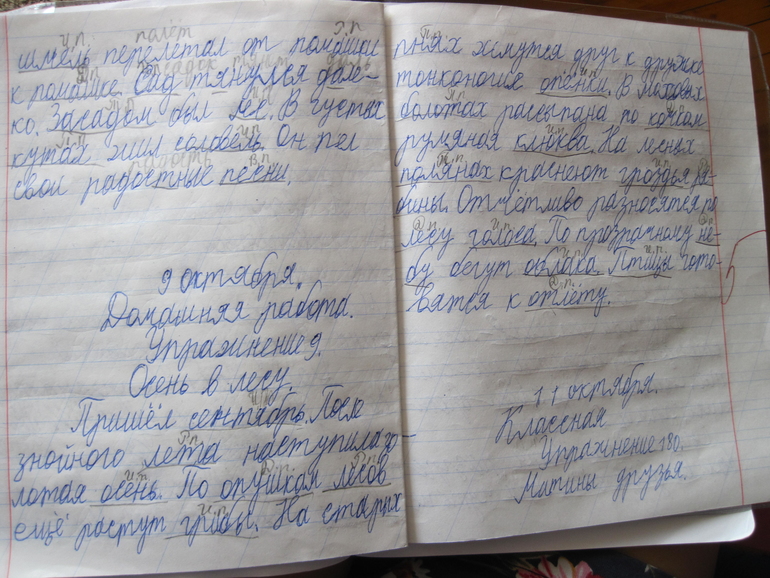 шмель перелетал от ромашки
к ромашке. Сад тянулся дале-
ко. За садом был лес. В густых
кутах жил соловель. Он пел
свои радостные песни.
9 октября.
Домашняя работа.
Упражнение 9.
Осень в лесу.
Пришёл сентябрь. После
знойного лета наступила зо-
лотая осень. По опушкам лесов
ещё растут грибы. На старых
пнях жмутся друг к дружке
тонконогие опёнки. В моховых
болотах рассыпана по кочкам
румяная клюква. На лесных
полянах краснеют гроздья ря-
бины. Отчётливо разносятся по
лесу голоса. По прозрачному не-
бу бегут облака. Птицы гото-
вятся к отлёту.
11 октября.
Классная
Упражнение 180.
Матины друзья.